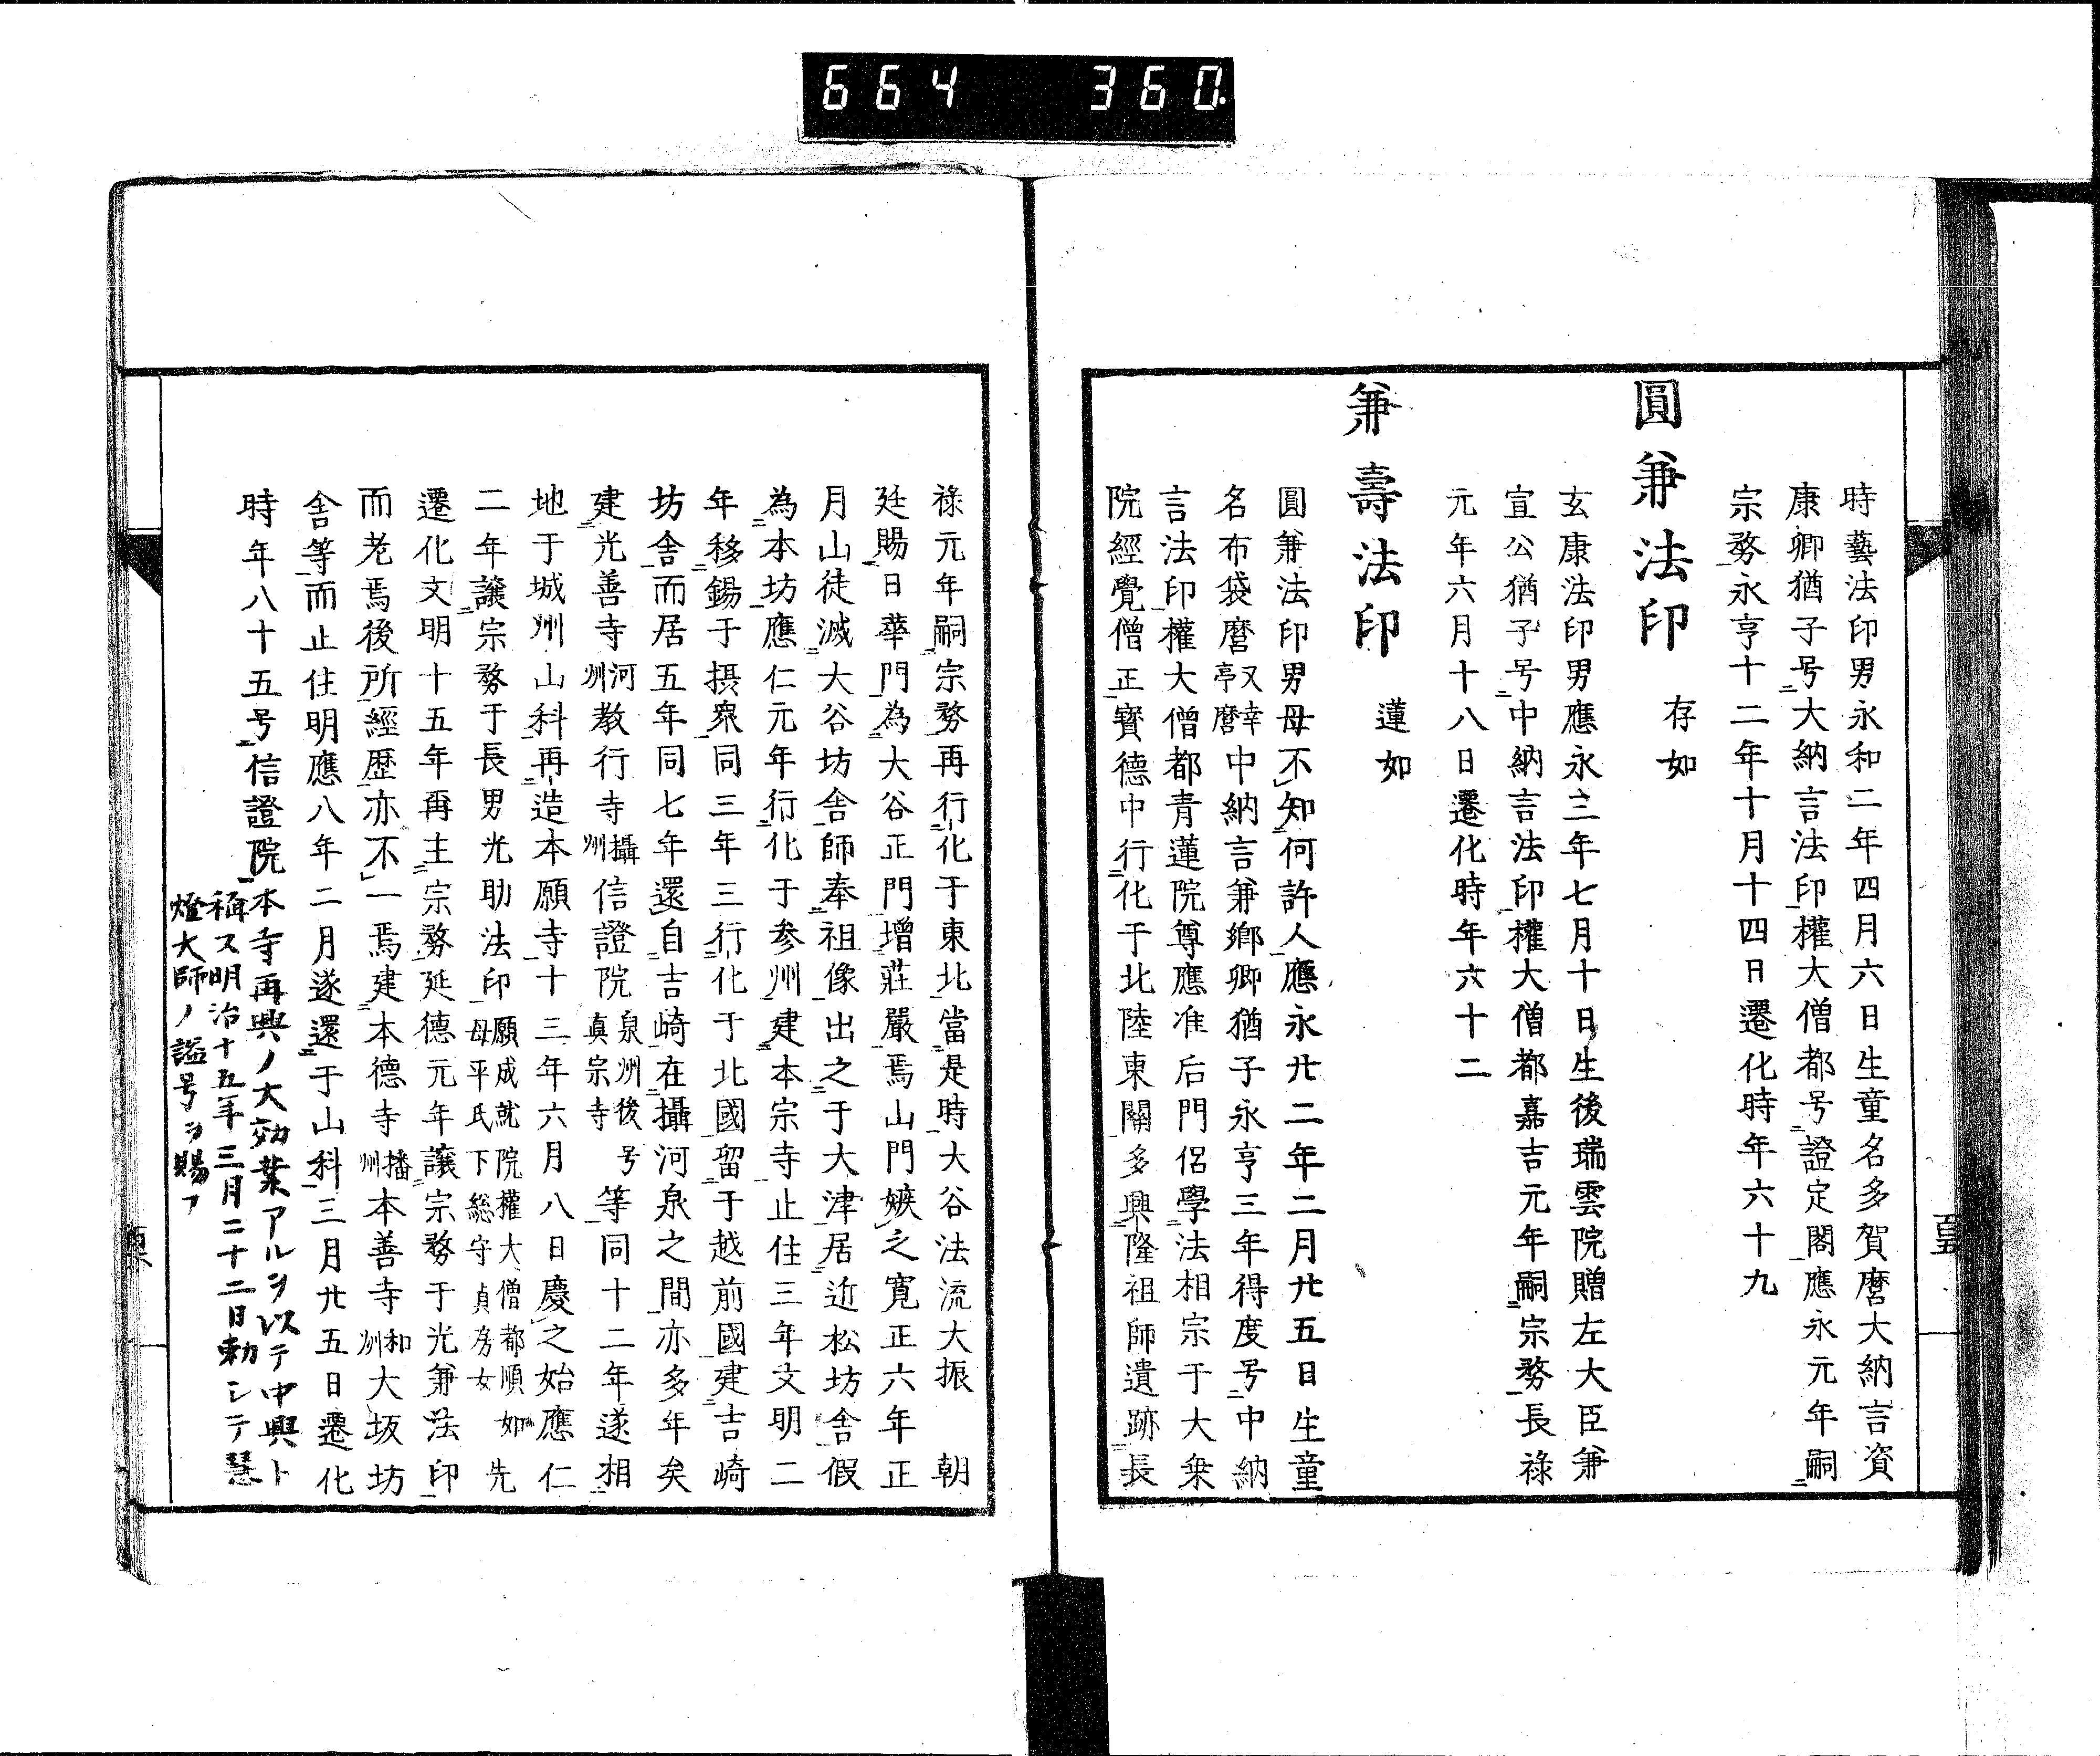 664 360
時藝法印男永和二年四月六日生童名多賀麿大納言資
康卿猶子号大納言法印權大僧都号證定閣應永元年嗣
宗務永亨十二年十月十四日遷化時年六十九
圓兼法印 存如
玄康法印男應永三年七月十日生後瑞雲院贈左大臣兼
宣公猶子号中納言法印權大僧都嘉吉元年嗣宗務長祿
元年六月十八日遷化時年六十二
兼壽法印 蓮如
圓兼法印男母不知何許人應永廿二年二月廿五日生童
名布袋麿又幸亭麿中納言兼鄉卿猶子永亨三年得度号中納
言法印權大僧都青蓮院尊應准后門侶學法相宗于大乗
院經覺僧正寶德中行化于北陸東關多興隆祖師遺跡長
祿元年嗣宗務再行化于東北當是時大谷法流大振 朝
廷賜日華門為大谷正門增莊嚴焉山門嫉之寛正六年正
月山徒滅大谷坊舎師奉祖像出之于大津居近松坊舎假
為本坊應仁元年行化于参州建本宗寺止住三年文明二
年移錫于摂衆同三年三行化于北國留于越前國建吉崎
坊舎而居五年同七年還自吉崎在攝河泉之間亦多年矣
建光善寺河州教行寺攝州信證院泉州後号真宗寺等同十二年遂相
地于城州山科再造本願寺十三年六月八日慶之始應仁
二年讓宗務于長男光助法印願成就院權大僧都順如先母平氏下総守貞房女
遷化文明十五年再主宗務延德元年讓宗務于光兼法印
而老焉後所經歴亦不一焉建本德寺播州本善寺和州大坂坊
舎等而止住明應八年二月遂還于山科三月廿五日遷化
時年八十五号信證院本寺再興ノ大効業アルヲ以テ中興ト
稱ス明治十五年三月二十二日勅シテ慧
燈大師ノ諡号ヲ賜フ